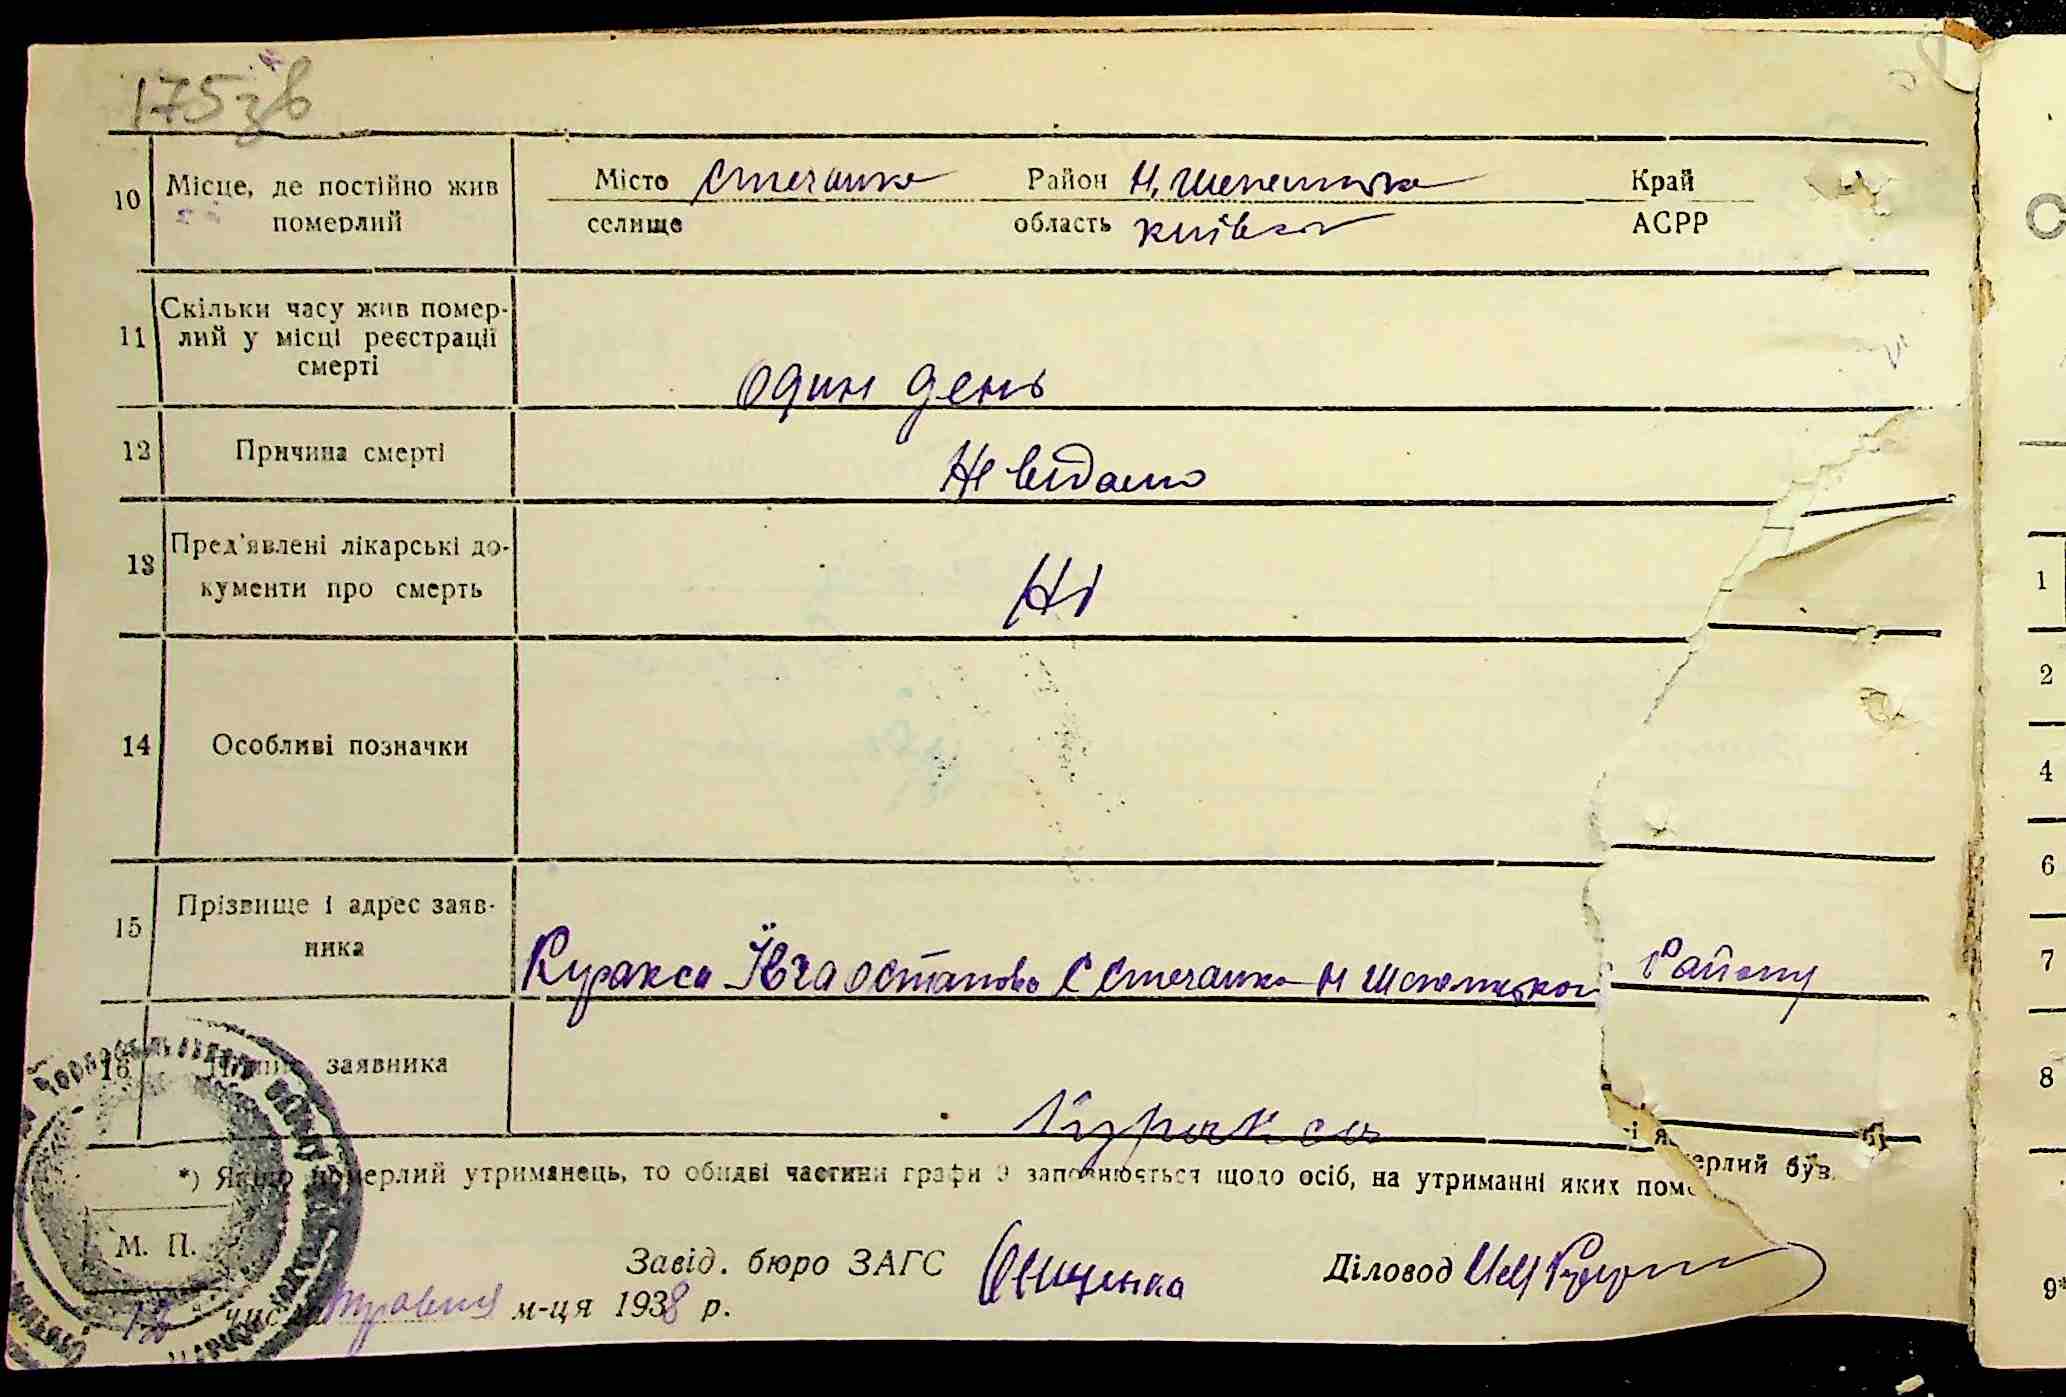 175 зв
10 Місце, де постійно жив померлий Місто Стечанка Район Н. Шепелицьк Край
селище область київск АСРР
11 Скільки часу жив помер-
лий у місці реєстрації
смерті
один день
12 Причина смерті Не відомо
13 Пред'явлені лікарські до-
кументи про смерть
Ні
14 Особливі позначки
15 Прізвище і адрес заяв-
ника
Куракса Остапова С Стечанка Н Шепелицьког Району
16 заявника
Куракса
*) Якщо померлий утриманець, то обидві частини графи 9 заповнюється щодо осіб, на утриманні яких померлий був.
М. П.
Завід. бюро ЗАГС Онищенко Діловод
числа травня м-ця 1938 р.
1
2
4
6
7
8
9*